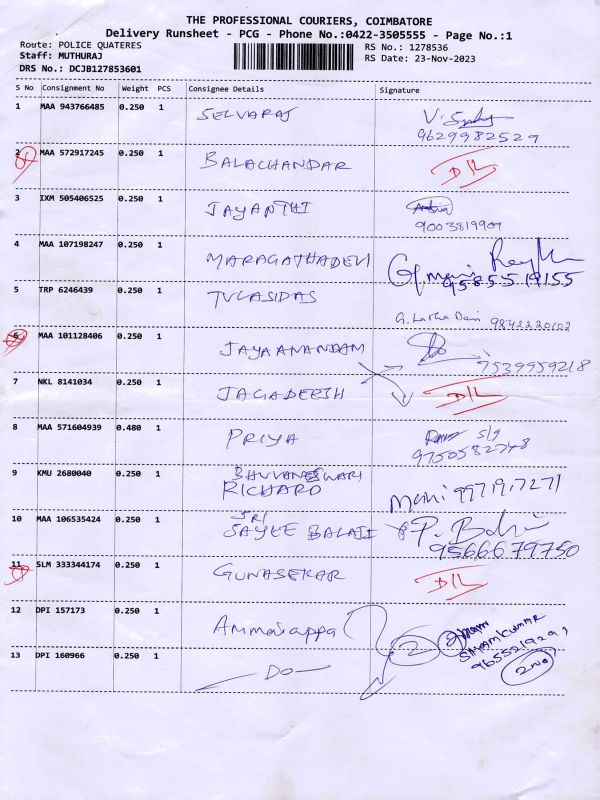 THE PROFESSIONAL COURIERS, COIMBATORE
Delivery Runsheet - PCG - Phone No.:0422-3505555 - Page No.:1
Route: POLICE QUATERES RS No.: 1278536
Staff: MUTHURAJ RS Date: 23-Nov-2023
DRS No.: DCJB127853601
S No Consignment No Weight PCS Consignee Details Signature
1 MAA 943766485 0.250 1 SELVARAJ
9629982529
2 MAA 572917245 0.250 1 BALACHANDAR D/L
3 IXM 505406525 0.250 1 JAYANTHI
9003819907
4 MAA 107198247 0.250 1 MARAGATHADEVI
9585519155
5 TRP 6246439 0.250 1 TULASIDAS
G. Latha Devi 9842220102
6 MAA 101128406 0.250 1 JAYAANANDAM
7539959218
7 NKL 8141034 0.250 1 JAGADEESH D/L
8 MAA 571604939 0.480 1 PRIYA
9750582748
9 KMU 2680040 0.250 1 BHUVANESWARI
RICHARD Mani 9971917271
10 MAA 106535424 0.250 1 SRI
SAYEE BALAJI P. Balaji
9566679750
11 SLM 333344174 0.250 1 GUNASEKAR D/L
12 DPI 157173 0.250 1 Ammaiappa 2
SIVAMKUMAR
13 DPI 160966 0.250 1 —DO— 2 NO